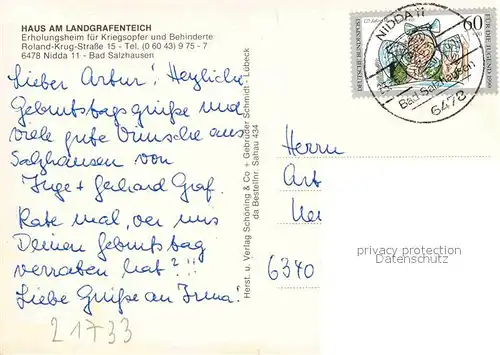 HAUS AM LANDGRAFENTEICH
Erholungsheim für Kriegsopfer und Behinderte
Roland-Krug-Straße 15 - Tel. (0 60 43) 9 75 - 7
6478 Nidda 11 - Bad Salzhausen
Lieber Artur! Herzliche
Geburtstagsgrüße und
viele gute Wünsche aus
Salzhausen von
Inge + Gerhard Graf.
Rate mal, wer uns
Deinen Geburtstag
verraten hat?!!
Liebe Grüße an Irma!
21733
Herst. u. Verlag Schöning & Co + Gebrüder Schmidt - Lübeck
da Bestellnr. Sahau 434
DEUTSCHE BUNDESPOST
60
FÜR DIE JUGEND 1990
NIDDA 11
Bad Salzhausen
6478
Herrn
Art
6340
privacy protection
Datenschutz